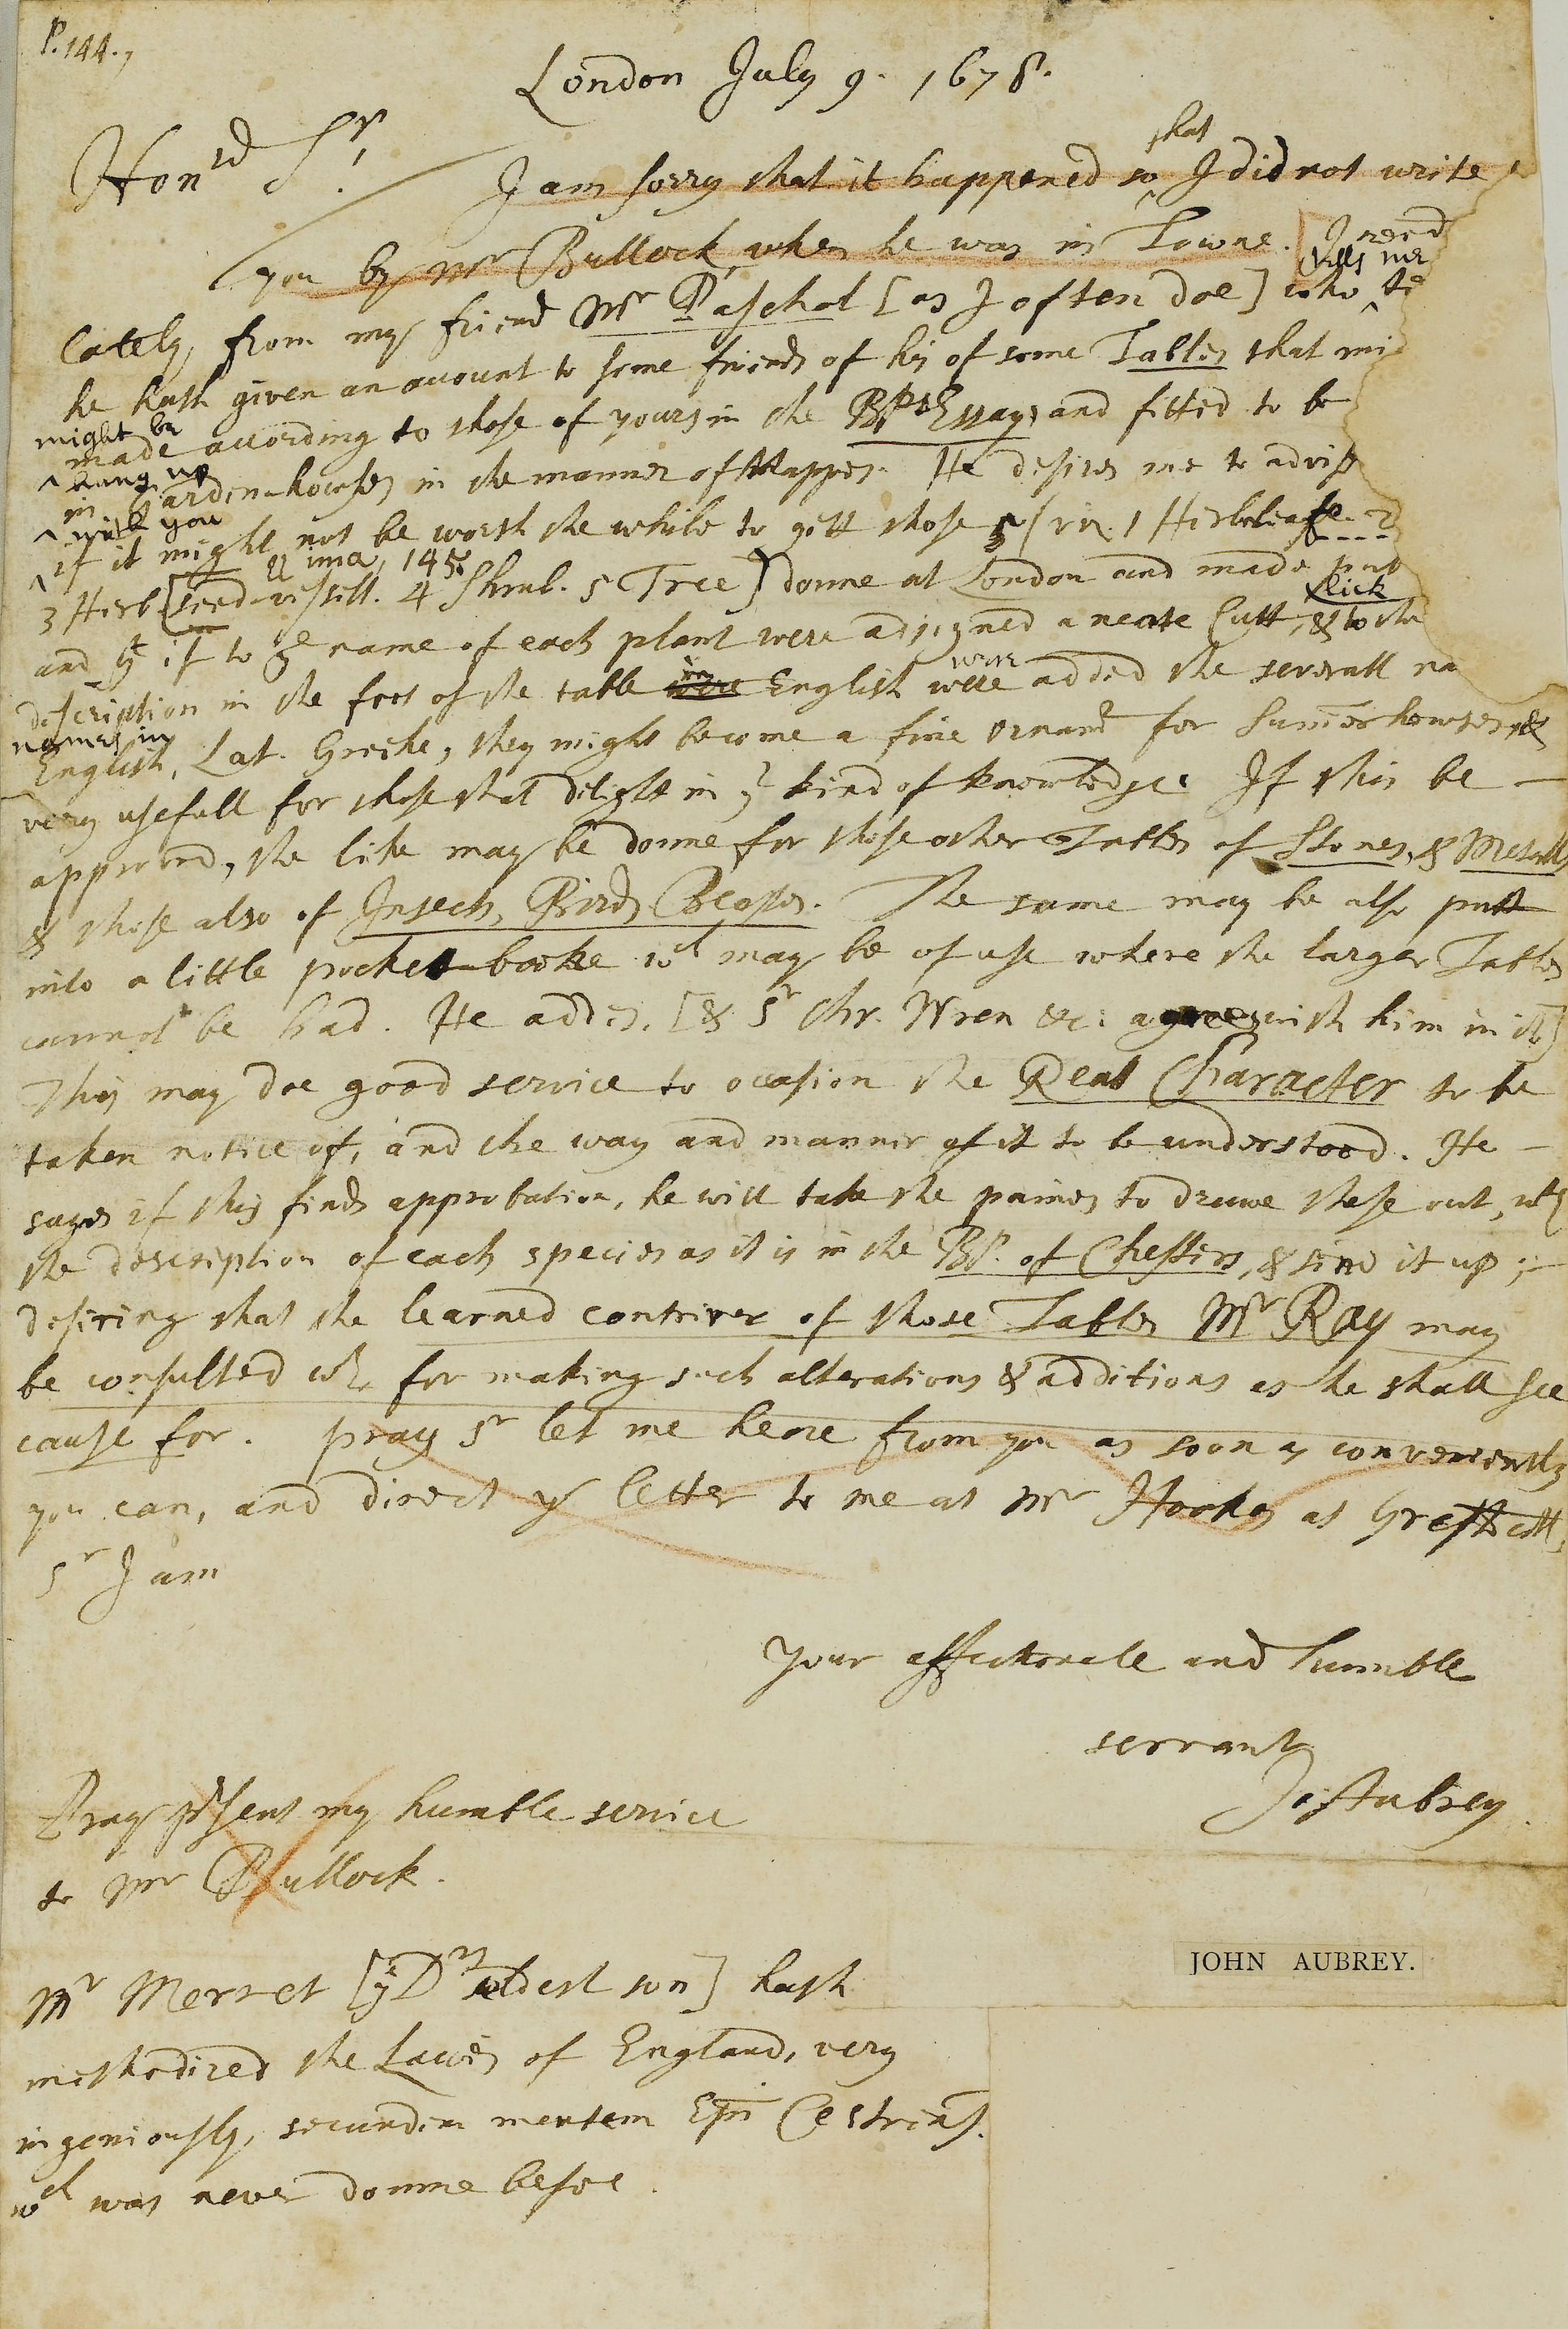 P. 144.
London July 9. 1678.
Hon.rd Sr.
I am sorry that it happened so that I did not write
you by Mr Bullock when he was in Towne. I rec'd
lately from my friend Mr Paschal [as I often doe] who tells me
he hath given an account to some friends of his of some Tables that
might be
made according to those of yours in the Bps Essay, and fitted to be
hang up
in Garden-howses in the manner of Mappes. He desires me to advise
with you
if it might not be worth the while to gett those 5 (viz. 1 Herb leafe
3 Herb [seed-vessell. 4 Shrub. 5 Tree] donne at London and made pub
lick
and yt if to ye name of each plant were adjoyned a neate Cutt, & to the
description in the foot of the table in English were added the severall
names in
English, Lat. Greeke, they might become a fine ornamt for Summerhowses, &
very usefull for those that delight in yt kind of knowledge. If this be
approved, the like may be donne for those other Tables of Stones, & Metalls
& those also of Insects, Birds, Beastes. The same may be also putt
into a little pocket-booke wch may be of use where the larger Tables
cannot be had. He addes, [& Sr Chr. Wren &c: agrees with him in it]
This may doe good service to occasion the Real Character to be
taken notice of, and the way and manner of it to be understood. He
sayes if this finds approbation, he will take the paines to drawe these out, wth
the description of each species as it is in the Bp. of Chesters, & send it up;
desiring that the learned contriver of those Tables Mr Ray may
be consulted wth for making such alterations & additions as he shall see
cause for. pray Sr let me heare from you as soon as conveniently
you can, and direct yr letter to me at Mr Hookes at Gresh: coll,
Sr I am
Your affectionate and humble
servant
Jo: Aubrey
Pray present my humble service
to Mr Bullock.
Mr Merret [ye Drs eldest son] hath
methodized the Lawes of England, very
ingeniously, secundum mentem Epi Cestriens.
wch was never donne before.
JOHN AUBREY.